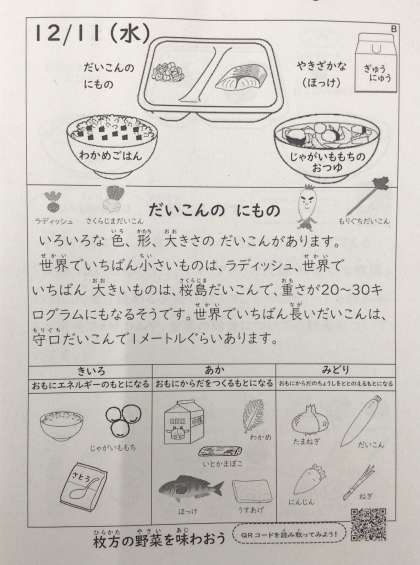 12/11(水)
B
だいこんの
にもの
やきざかな
(ほっけ)
ぎゅう
にゅう
わかめごはん
じゃがいももちの
おつゆ
ラディッシュ
さくらじまだいこん
だいこんの にもの
もりぐちだいこん
いろいろな 色、形、大きさの だいこんがあります。
世界でいちばん小さいものは、ラディッシュ、世界で
いちばん 大きいものは、桜島だいこんで、重さが20～30キ
ログラムにもなるそうです。世界でいちばん長いだいこんは、
守口だいこんで1メートルぐらいあります。
きいろ
おもにエネルギーのもとになる
あか
おもにからだをつくるもとになる
みどり
おもにからだのちょうしをととのえるもとになる
じゃがいももち
さとう
わかめ
いとかまぼこ
ほっけ
うすあげ
たまねぎ
だいこん
にんじん
ねぎ
枚方の野菜を味わおう
QRコードを読み取ってみよう!